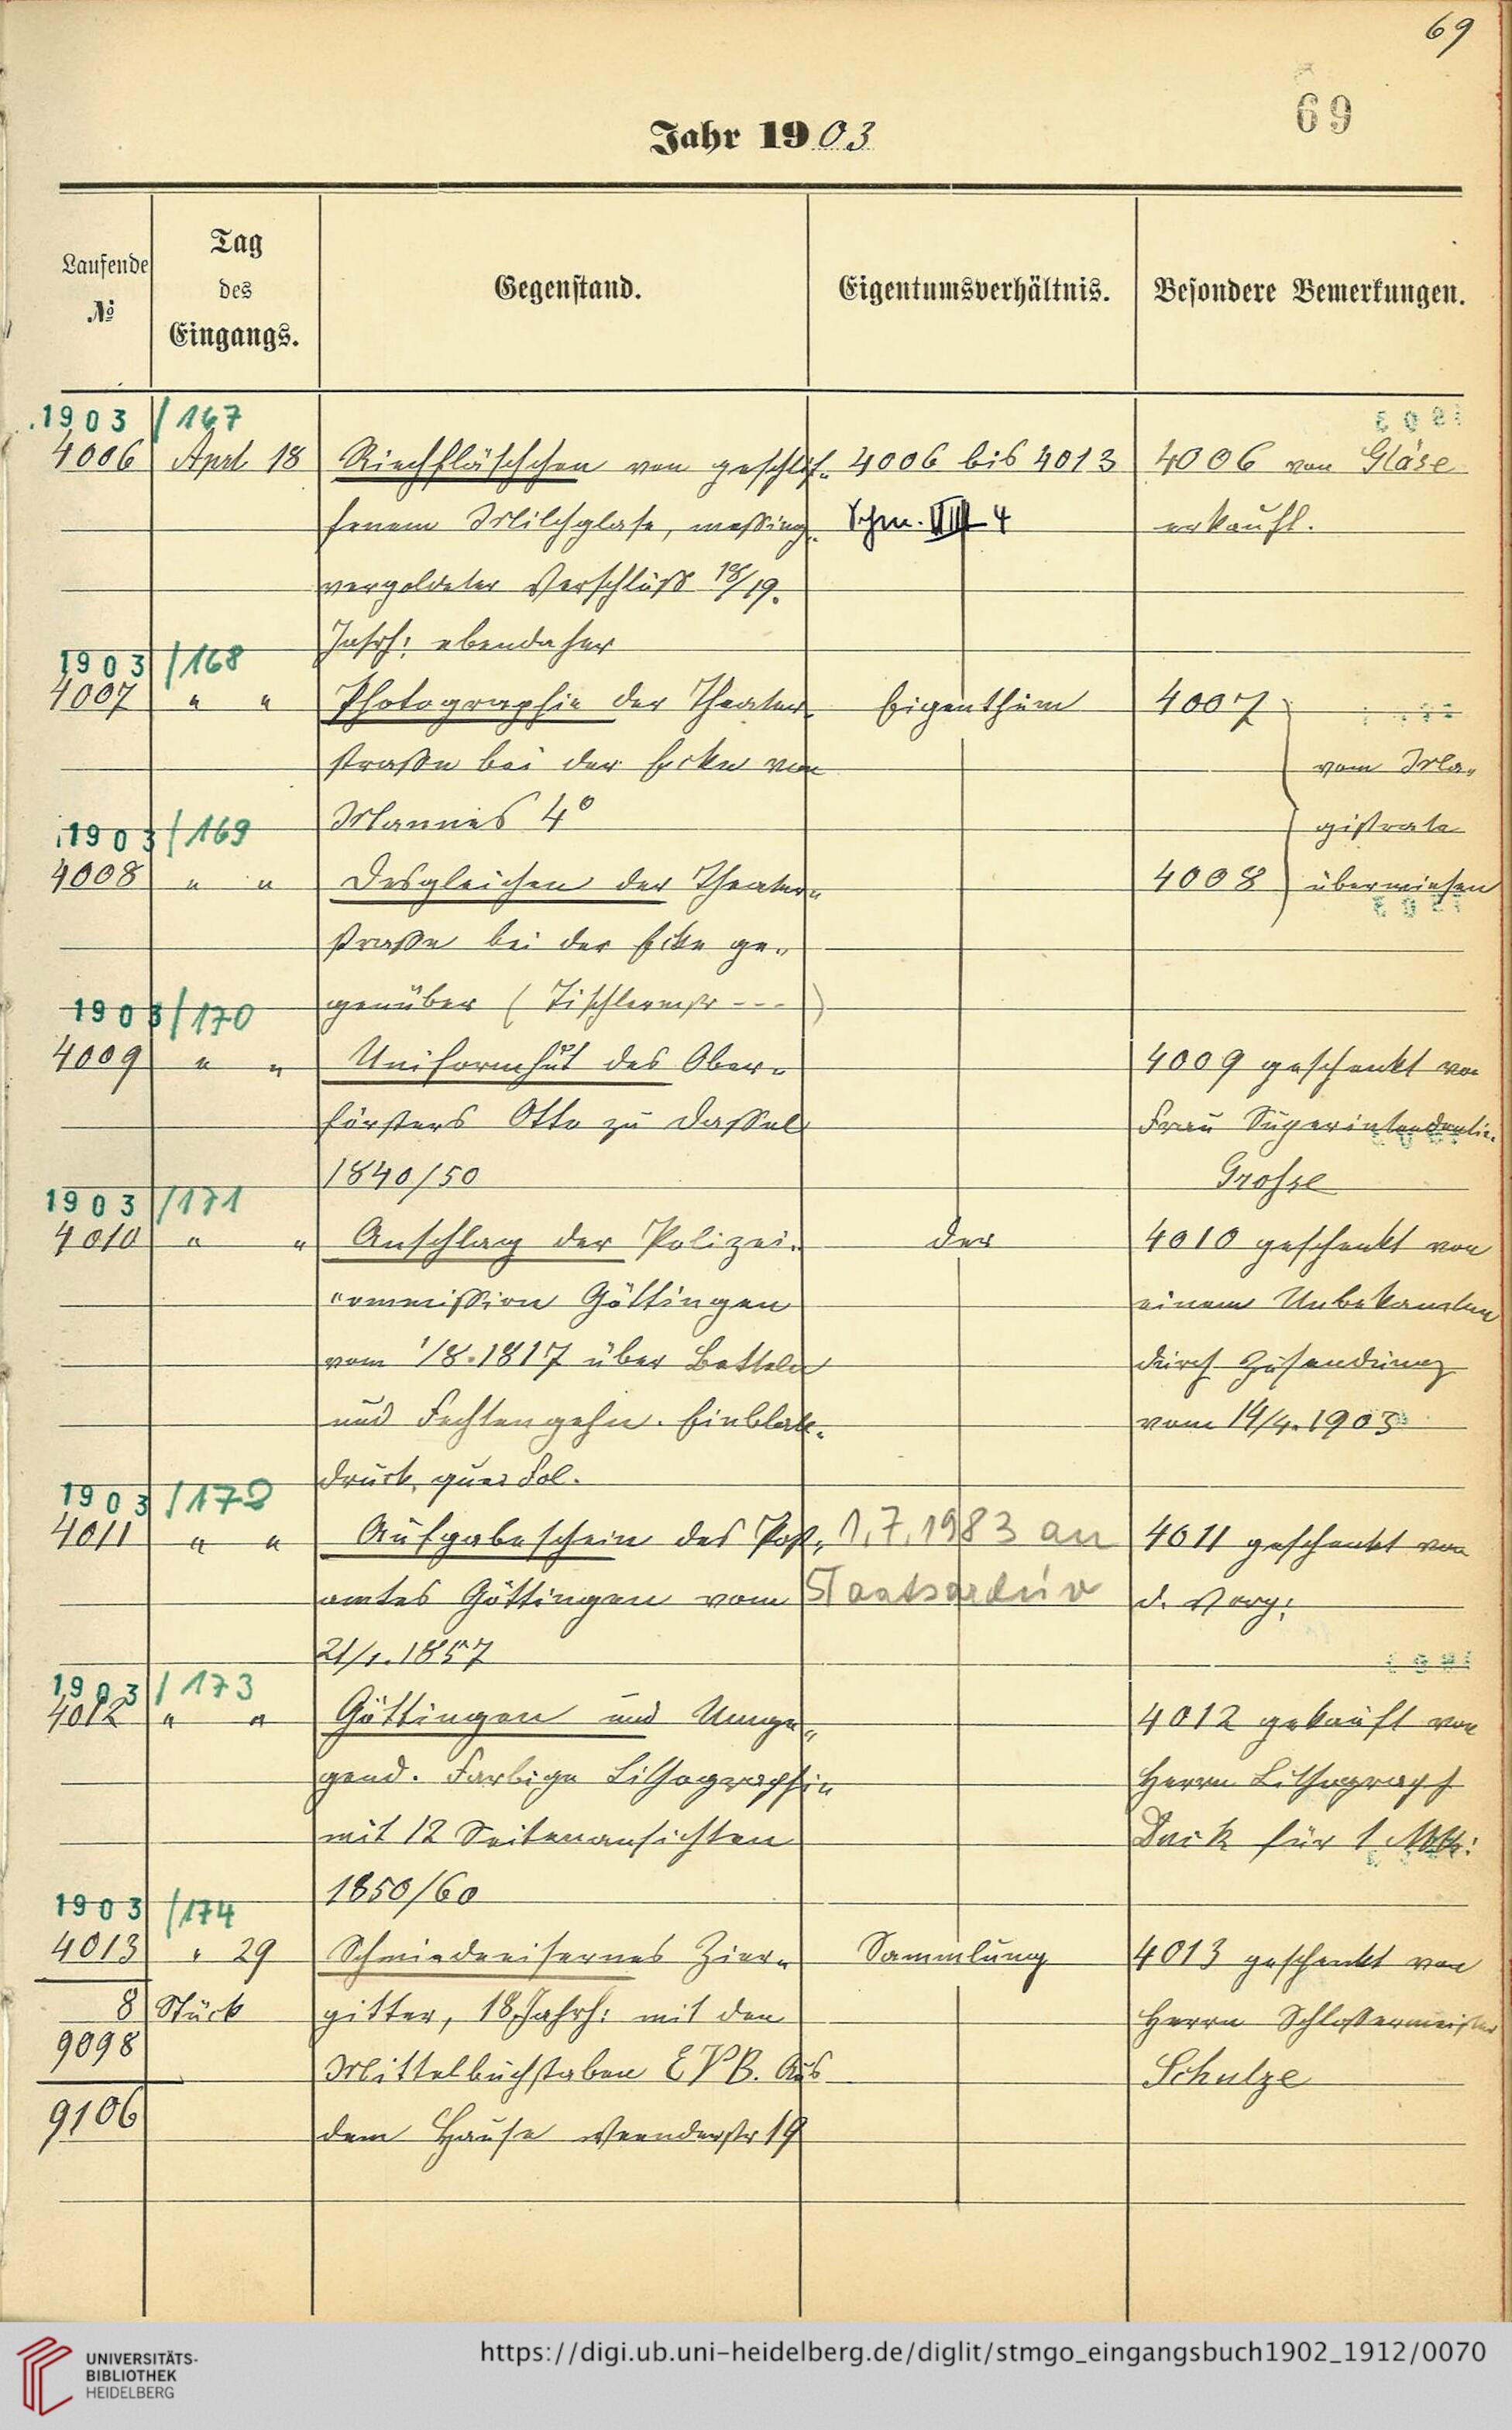 69
69
Jahr 1903
Laufende
№
Tag
des
Eingangs.
Gegenstand.
Eigentumsverhältnis.
Besondere Bemerkungen.
1903/167
4006 Aprl. 18 Riechfläschchen von geschlif- 4006 bis 4013 4006 von Gläse
fenem Milchglase, messing- VIII 4 erkauft.
vergoldeter Verschluß 18/19.
Jahrh: ebendaher
1903/168
4007 " " Photographie der Theater- Eigenthum 4007
straße bei der Ecke von vom Ma-
Mannes 4° gistrate
1903/169
4008 " " Desgleichen der Theater- 4008 überwiesen
straße bei der Ecke ge-
genüber (Tischlermstr ---)
1903/170
4009 " " Uniformhut des Ober- 4009 geschenkt von
försters Otto zu Dassel Frau Superintendentin
1840/50 Grosse
1903/171
4010 " " Anschlag der Polizei- der 4010 geschenkt von
commission Göttingen einem Unbekannten
vom 1/8.1817 über Betteln durch Zusendung
und Fechtengehn. Einblatt- vom 14/4.1903
druck, quer Fol.
1903/172
4011 " " Aufgabeschein des Post- 1.7.1983 an 4011 geschenkt von
amtes Göttingen vom Staatsarchiv d. Vorg:
21/1.1857
1903/173
4012 " " Göttingen und Umge- 4012 gekauft von
gend. Farbige Lithographie Herrn Lithograph
mit 12 Seitenansichten für 1 Mk:
1850/60
1903/174
4013 " 29 Schmiedeeisernes Zier- Sammlung 4013 geschenkt von
8 Stück gitter, 18. Jahrh: mit den Herrn Schlossermeister
9098 Mittelbuchstaben EPB. Aus Schulze
9106 dem Hause Weenderstr 19
UNIVERSITÄTS-
BIBLIOTHEK
HEIDELBERG
https://digi.ub.uni-heidelberg.de/diglit/stmgo_eingangsbuch1902_1912/0070